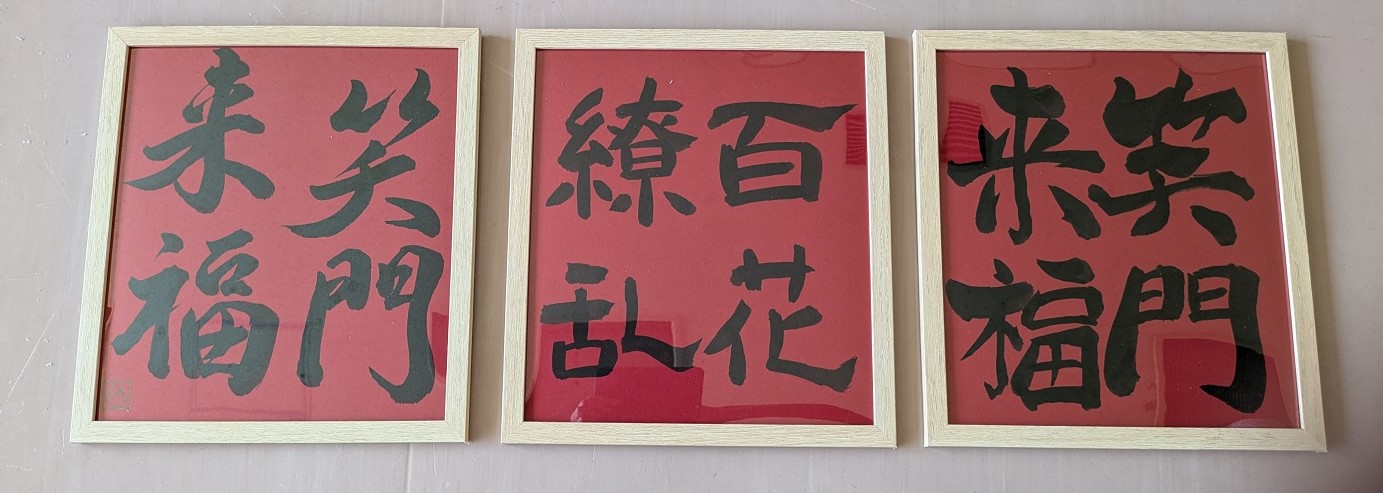 笑門
来福
百花
繚乱
笑門
来福